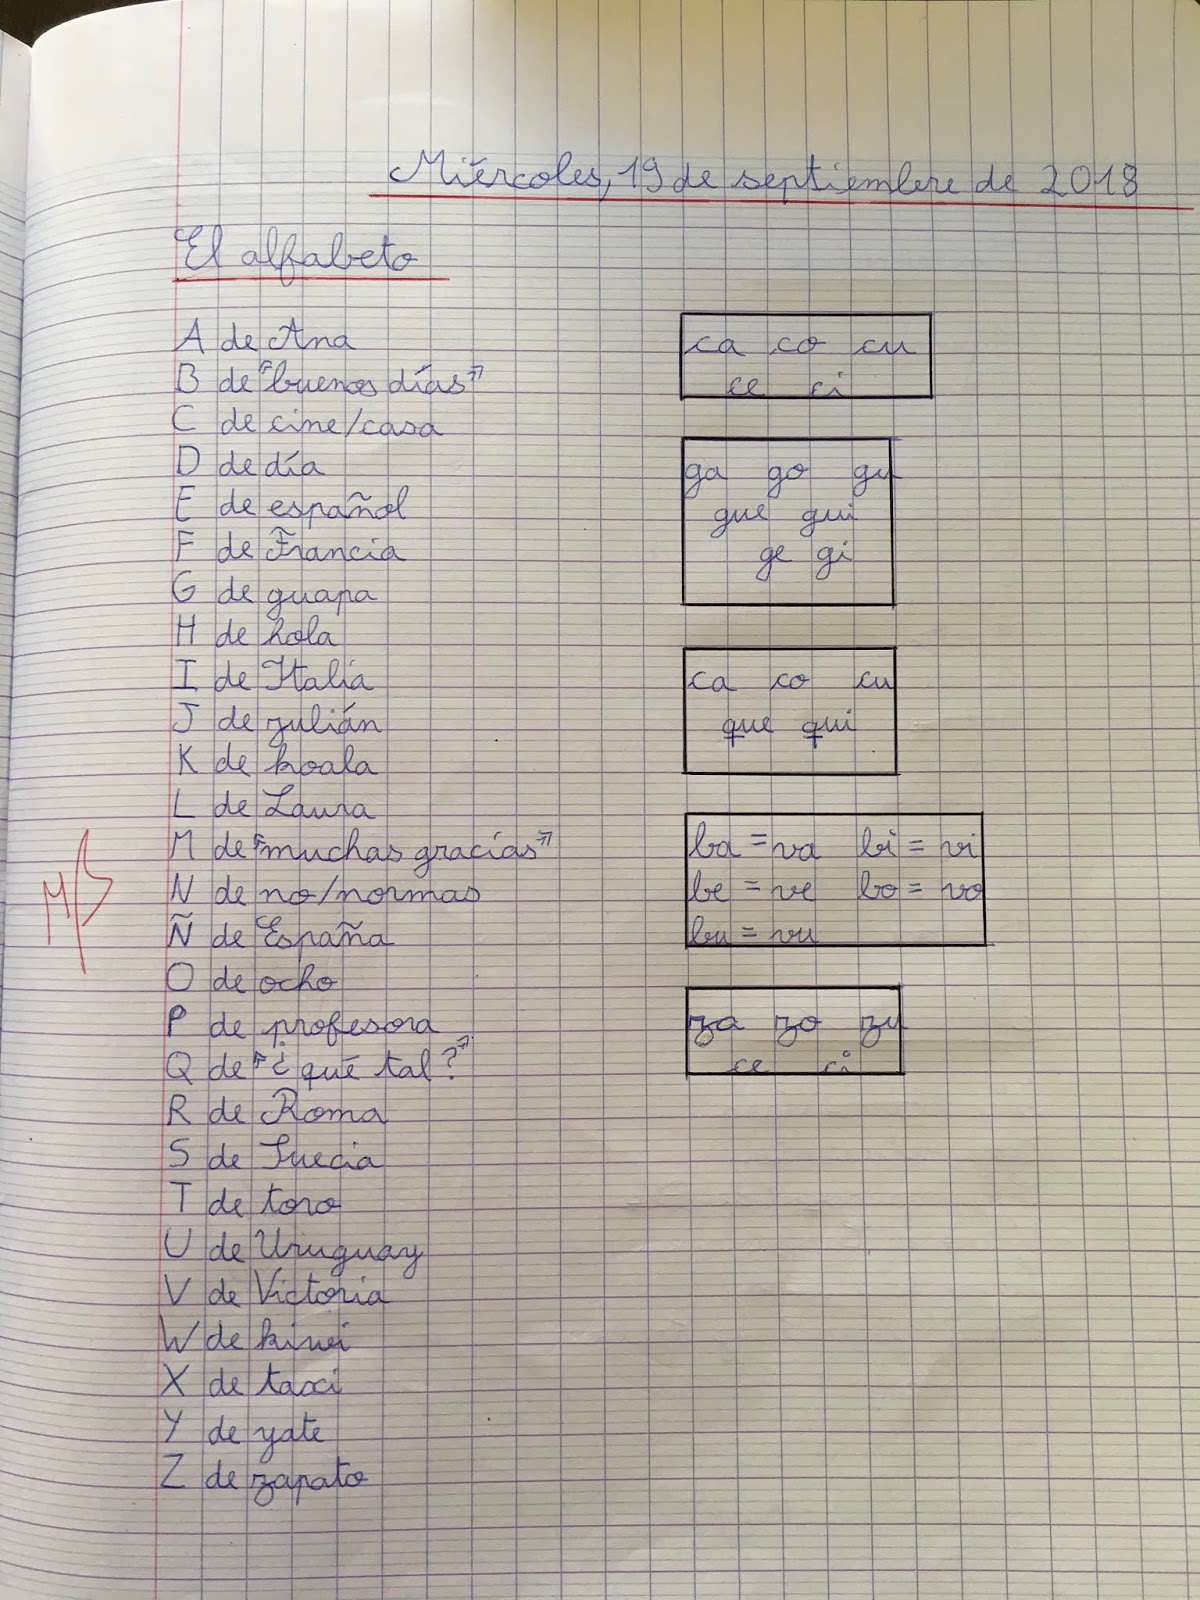 Miércoles, 19 de septiembre de 2018
El alfabeto
A de Ana
B de "buenos días"
C de cine/casa
D de día
E de español
F de Francia
G de guapa
H de hola
I de Italia
J de julián
K de koala
L de Laura
M de "muchas gracias"
N de no/normas
Ñ de España
O de ocho
P de profesora
Q de "¿qué tal?"
R de Roma
S de Suecia
T de toro
U de Uruguay
V de Victoria
W de kiwi
X de taxi
Y de yate
Z de zapato
ca co cu
ce ci
ga go gu
gue gui
ge gi
ca co cu
que qui
ba = va bi = vi
be = ve bo = vo
bu = vu
za zo zu
ce ci